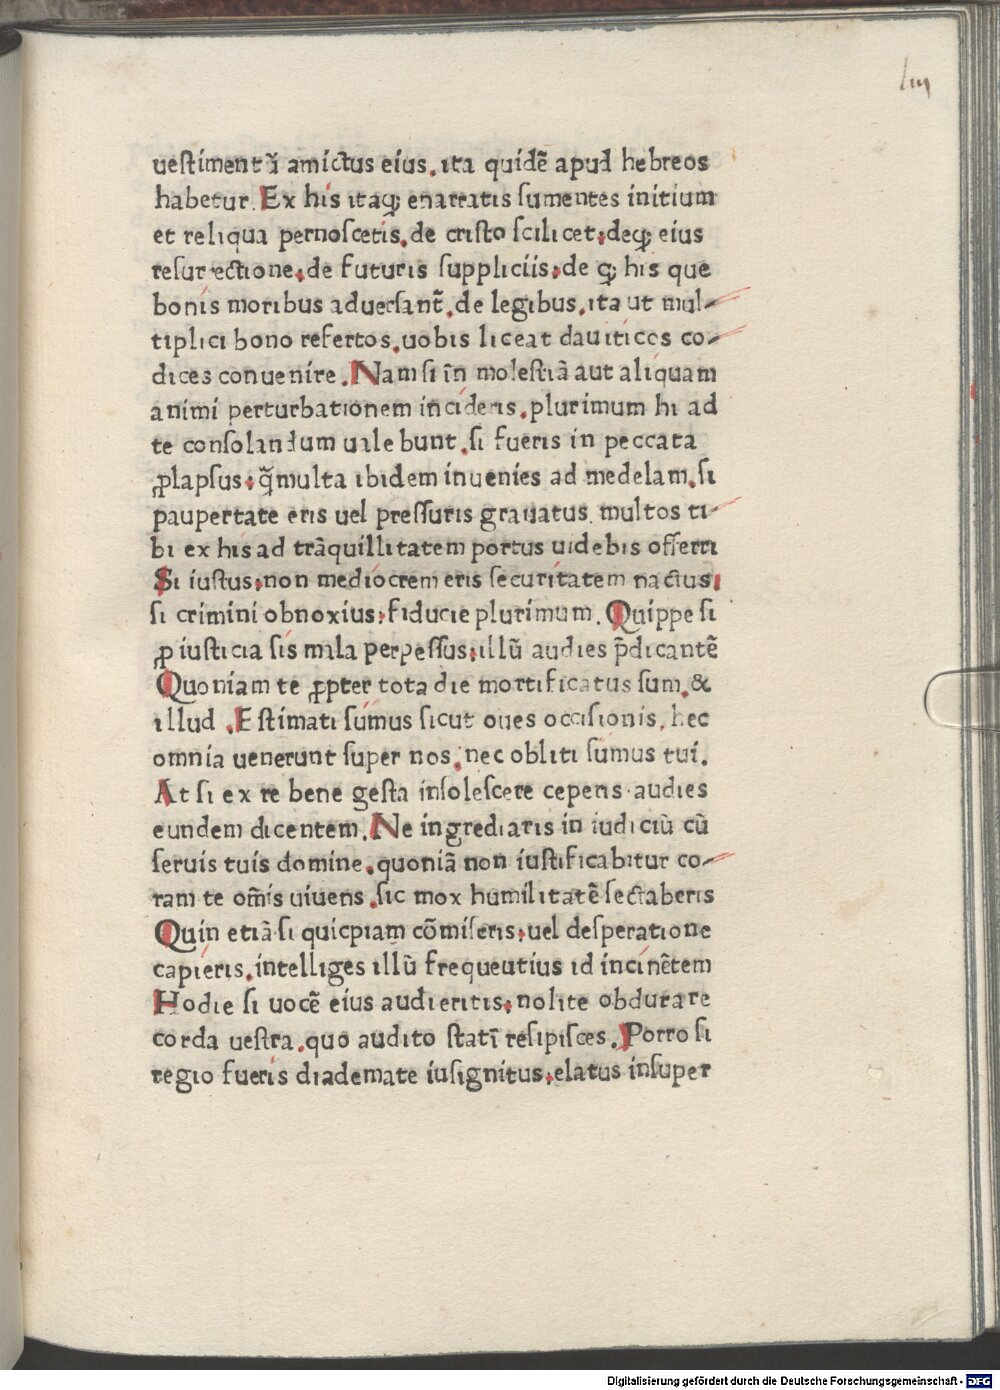 lııı
ueſtimentā amictus eius. ita quidē apud hebreos
habetur. Ex his itaqꝫ enarratis ſumentes initium
et reliqua pernoſcetis. de criſto ſcilicet: deqꝫ eius
reſurrectione: de futuris ſuppliciis: de qꝫ his que
bonis moribus aduerſant̄. de legibus. ita ut mul-
tiplici bono refertos. uobis liceat dauiticos co-
dices conuenire. Nam ſi in̄ moleſtiā aut aliquam
animi perturbationem incideris. plurimum hi ad
te conſolandum uale bunt. ſi fueris in peccata
ꝓlapſus: q̄ multa ibidem inuenies ad medelam. ſi
paupertate eris uel preſſuris grauatus. multos ti-
bi ex his ad trāquillitatem portus uidebis offerri
Si iuſtus: non mediocrem eris ſecuritatem nactus:
ſi crimini obnoxius: fiducie plurimum. Quippe ſi
ꝓ iuſticia ſis mala perpeſſus: illū audies p̄dicantē
Quoniam te ꝓpter tota die mortificatus ſum. &
illud. Eſtimati ſumus ſicut oues occiſionis. hec
omnia uenerunt ſuper nos. nec obliti ſumus tui.
At ſi ex re bene geſta inſoleſcere ceperis. audies
eundem dicentem. Ne ingrediaris in iudiciū cū
ſeruis tuis domine. quoniā non iuſtificabitur co-
ram te om̄is uiuens. ſic mox humilitatē ſectaberis
Quin etiā ſi quicpiam cōmiſeris: uel deſperatione
capieris. intelliges illū frequeutius id incinētem
Hodie ſi uocē eius audieritis: nolite obdurare
corda ueſtra. quo audito ſtatī reſipiſces. Porro ſi
regio fueris diademate iuſignitus: elatus inſuper
Digitalisierung gefördert durch die Deutsche Forschungsgemeinschaft - DFG